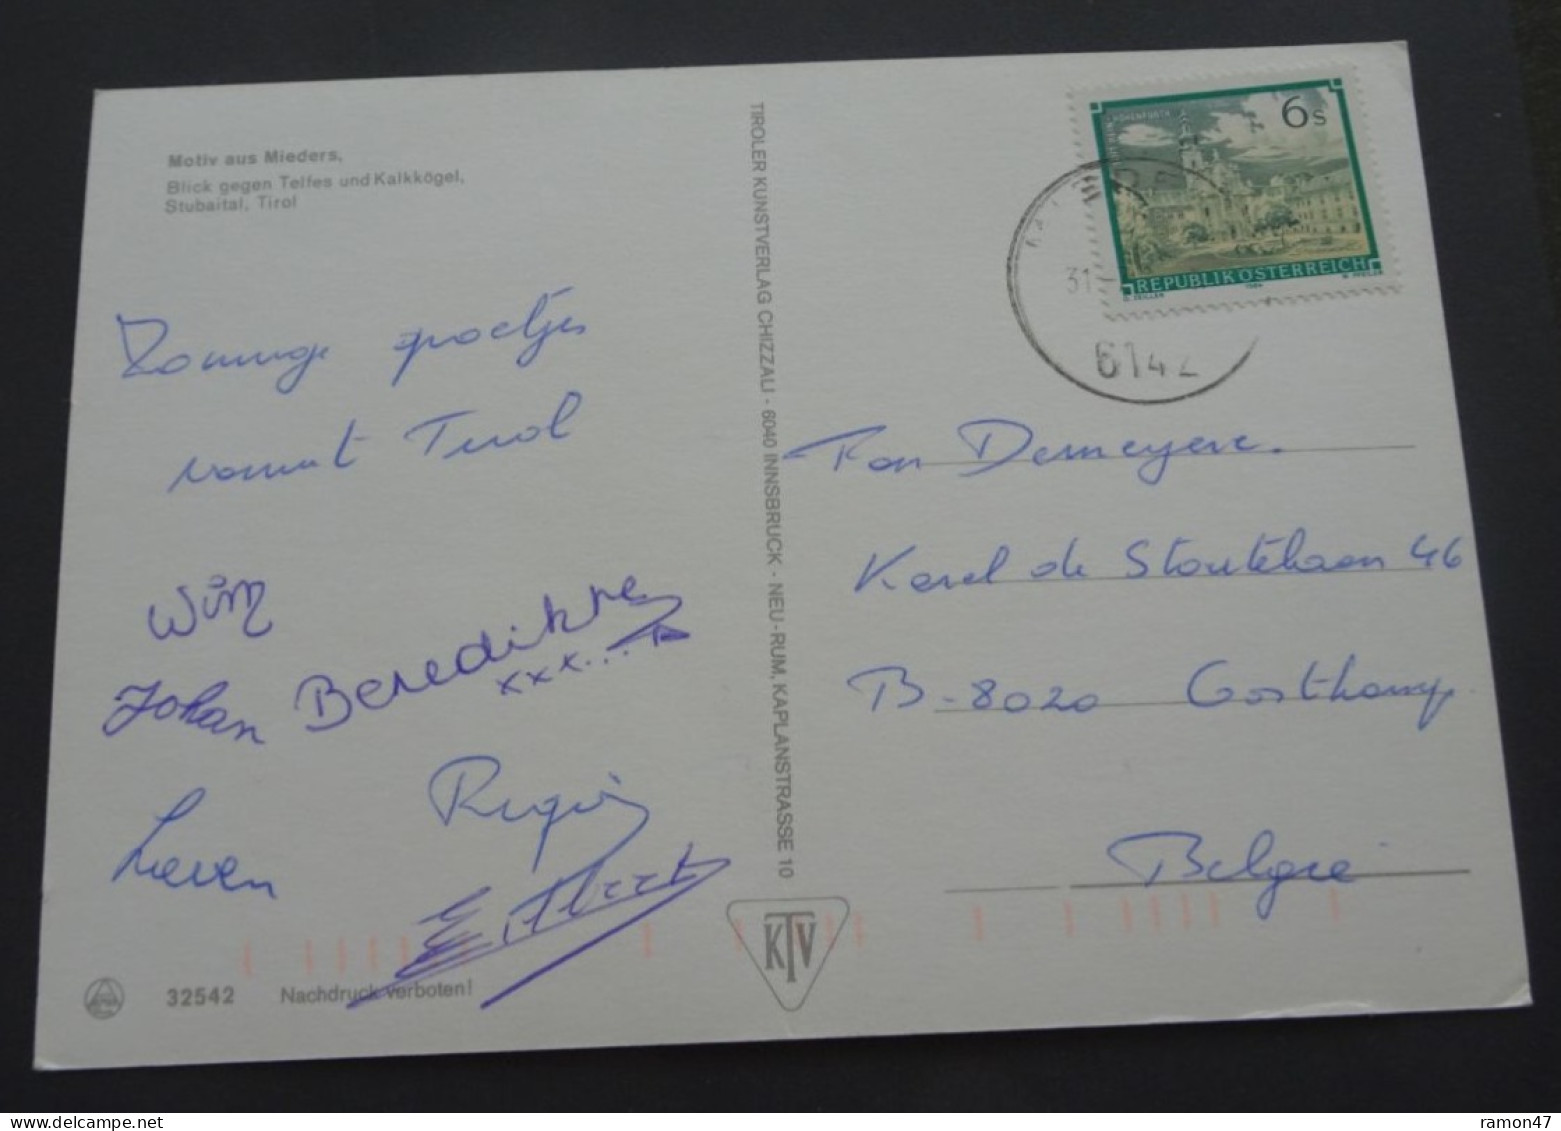 Motiv aus Mieders,
Blick gegen Telfes und Kalkkögel,
Stubaital, Tirol
Zonnige groetjes
vanuit Tirol
Wim
Johan Benedikte
xxx...
Regin
Lieven
32542 Nachdruck verboten!
TIROLER KUNSTVERLAG CHIZZALI · 6040 INNSBRUCK · NEU-RUM, KAPLANSTRASSE 10
KTV
6s
REPUBLIK ÖSTERREICH
31
6142
Fam Demeyere.
Karel de Stoutelaan 46
B-8020 Oostkamp
België
www.delcampe.net
ramon47